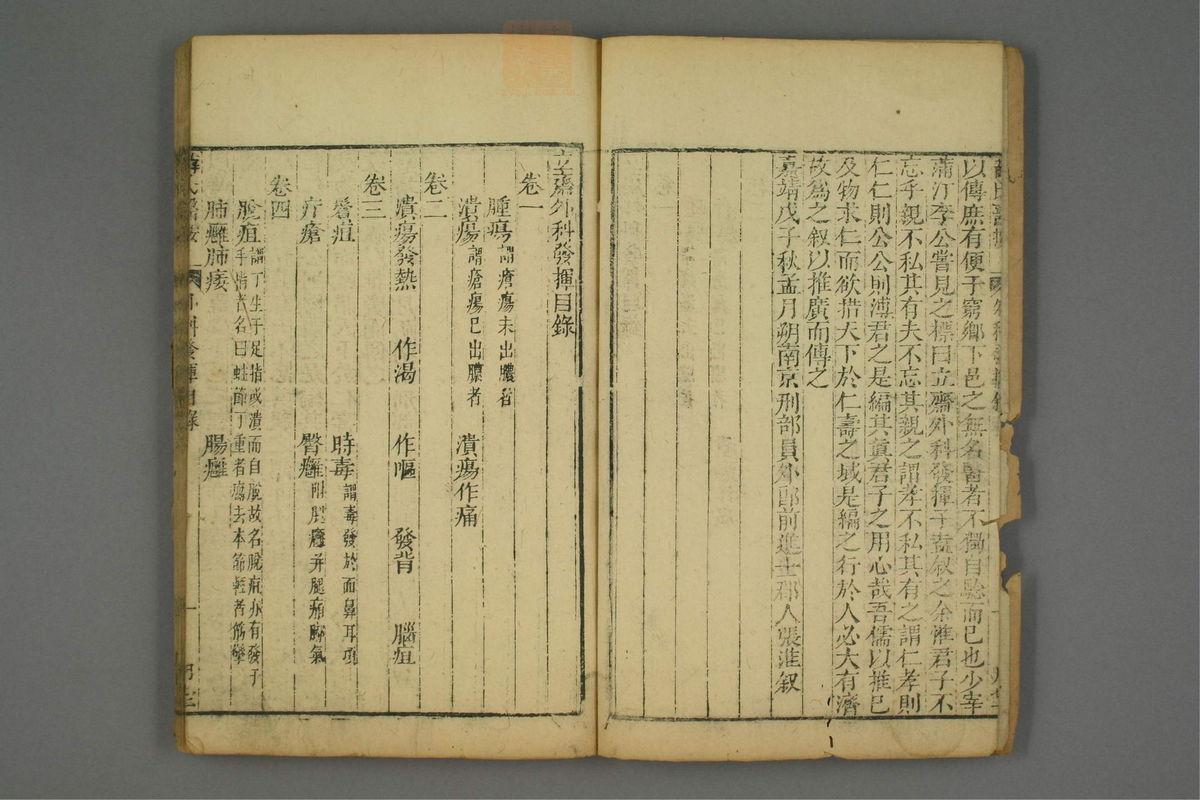 以傳庶有便于窮鄉下邑之無名醫者不獨自驗而已也少宰
蒲汀李公嘗見之標曰立齋外科發揮予盍叙之余惟君子不
忘乎親不私其有夫不忘其親之謂孝不私其有之謂仁孝則
仁仁則公公則溥君之是編其眞君子之用心哉吾儒以推已
及物求仁而欲措天下於仁壽之域是編之行於人必大有濟
故爲之叙以推廣而傳之
嘉靖戊子秋孟月朔南京刑部員外郎前進士郡人張淮叙
立齋外科發揮目錄
卷一
腫瘍 謂瘡瘍未出膿者
潰瘍 謂瘡瘍已出膿者 潰瘍作痛
卷二
潰瘍發熱 作渴 作嘔 發背 腦疽
卷三
鬢疽 時毒 謂毒發於面鼻耳項
疔瘡 臀癰 附腿癰并腿痛脚氣
卷四
脫疽 謂丁生于足指或潰而自脫故名脫疽亦有發于
手指者名曰蛀節丁重者腐去本節輕者筋攣
肺癰肺痿 腸癰
薛氏醫按 外科發揮目錄 一